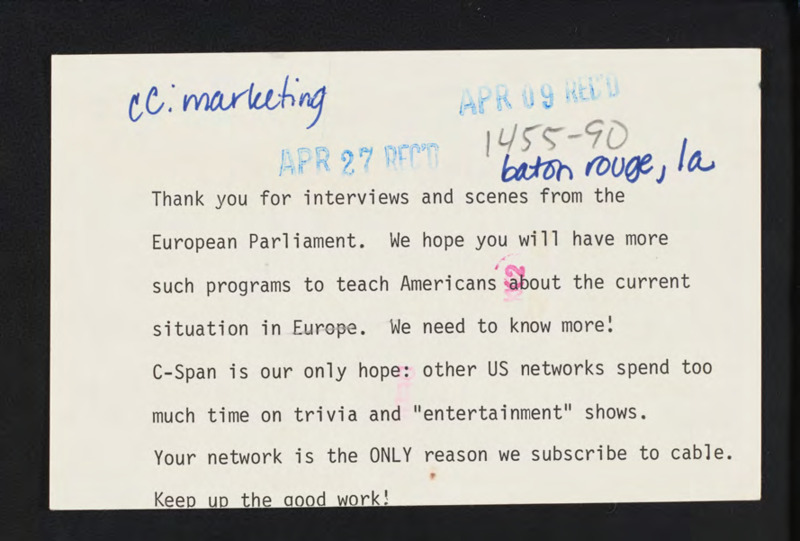 cc: marketing
APR 09 REC'D
1455-90
APR 27 REC'D
baton rouge, la
Thank you for interviews and scenes from the
European Parliament. We hope you will have more
such programs to teach Americans about the current
situation in Europe. We need to know more!
C-Span is our only hope: other US networks spend too
much time on trivia and "entertainment" shows.
Your network is the ONLY reason we subscribe to cable.
Keep up the good work!